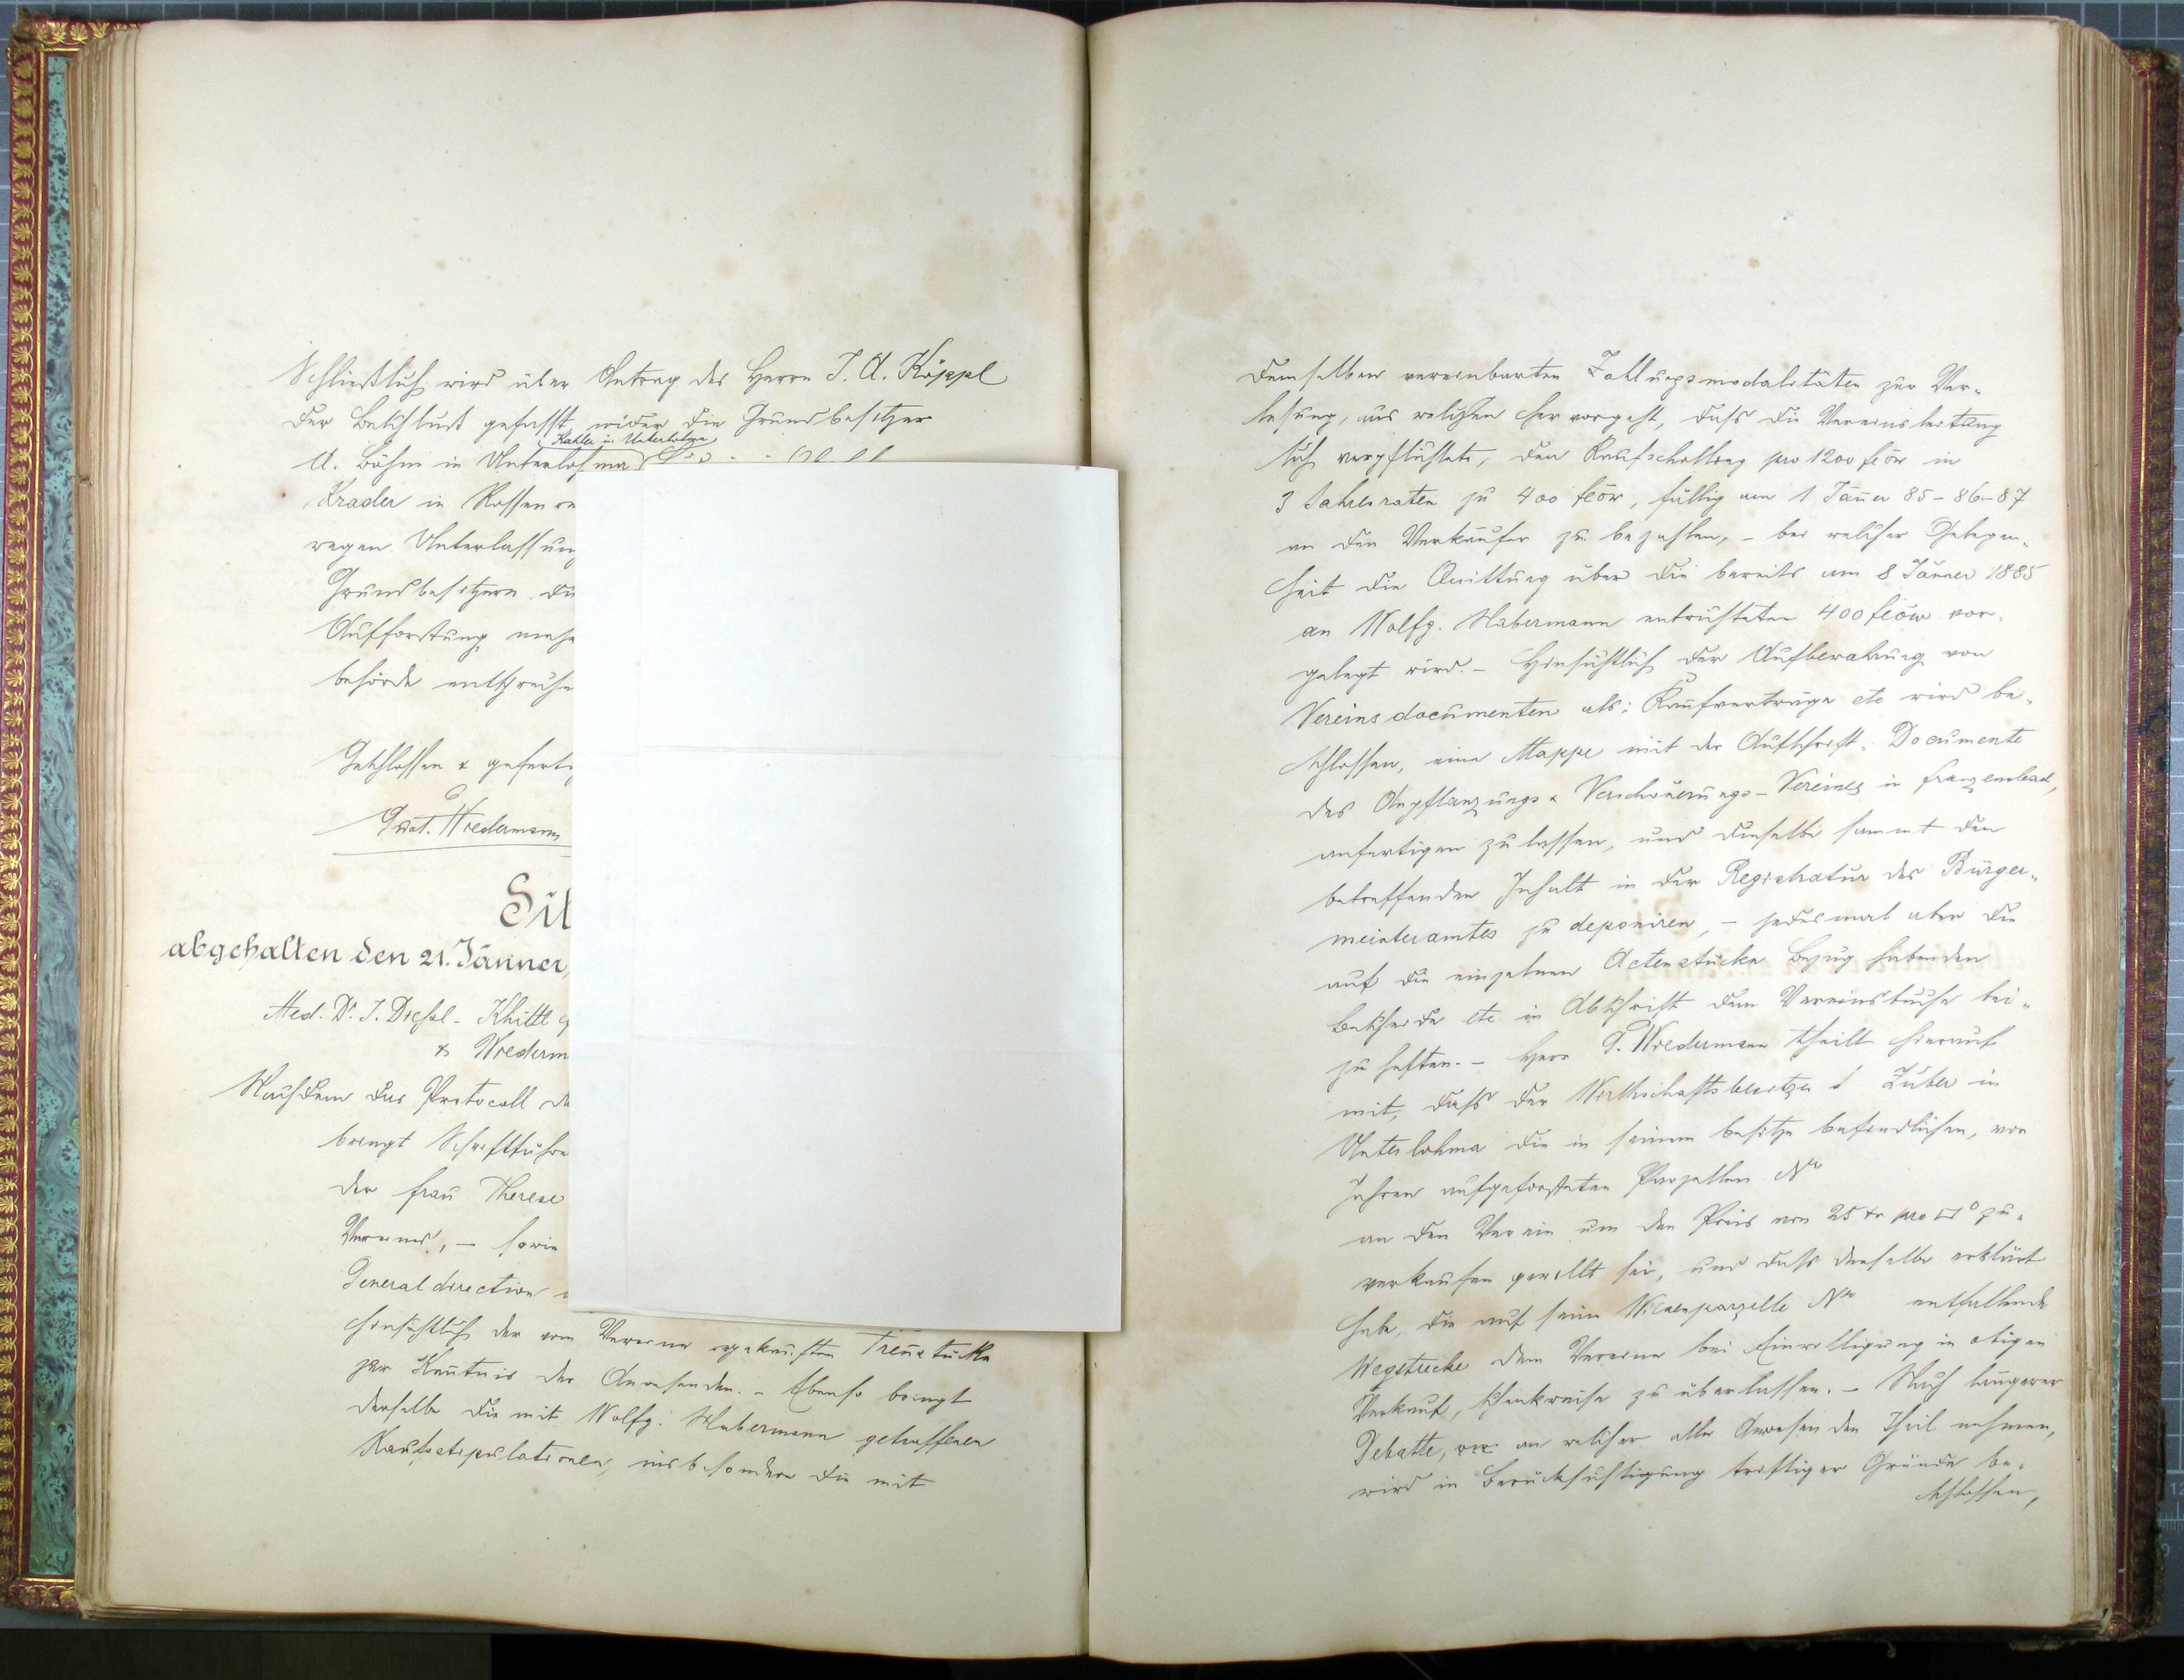 Schließlich wird über Antrag des Herrn J. A. Köppl
der Beschluß gefasst wider die Grundbesitzer
Kahler in Unterlohma
A. Böhm in Unterlohma
Krader in Rossenre
wegen Unterlassung
Grundbesitzern die
Aufforstung
behörde entspreche
Geschlossen & gefertig
Gust. Wiedermann
Sit
abgehalten den 21. Jänner,
Med. Dr. J. Diessl - Khittl
& Wiederm
Nachdem das Protocoll
bringt Schriftführe
der Frau Therese
Vereines, – sowie
Generaldirection
hinsichtlich der vom Vereine angekauften
zur Kentnis der Anwesenden. – Ebenso bringt
derselbe die mit Wolfg. Habermann getroffenen
Kaufsstipulationen, insbesondere die mit
demselben vereinbarten Zahlungsmodalitäten zur Ver-
lesung, aus welchen hervorgeht, daß die Vereinsleitung
sich verpflichtete, den Kaufschilling pro 1200 flöw in
3 Jahresraten zu 400 flöw, fällig am 1 Jäner 85-86-87
an den Verkäufer zu bezahlen, – bei welcher Gelegen-
heit die Quittung über die bereits am 8 Jänner 1885
an Wolfg. Habermann entrichteten 400 flöw vor-
gelegt wird. – Hinsichtlich der Aufbewahrung von
Vereinsdocumenten als: Kaufverträge etc wird be-
schlossen, eine Mappe mit der Aufschrift: Documente
des Anpflanzungs & Verschönerungs-Vereines in Franzensbad,
anfertigen zu lassen, und dieselbe sammt den
betreffenden Inhalt in der Registratur des Bürger-
meisteramtes zu deponiren, – jedesmal aber die
auf die einzelnen Actenstücke Bezug habenden
Bescheide etc in Abschrift dem Vereinsbuche bei-
zuheften. – Herr G. Wiedermann theilt hierauf
mit, daß der Wirthschaftsbesitzer Zuber in
Unterlohma die in seinem Besitze befindlichen, vor
Jahren aufgeforsteten Parzellen Nro
an den Verein um den Preis von 25 kr pro □° zu
verkaufen gewillt sei, und daß derselbe erklärt
habe, die auf seine Wiesenparzelle Nro entfallende
Wegstrecke dem Vereine bei Einwilligung in obigen
Verkauf, schenkweise zu überlassen. – Nach längerer
Debatte, an welcher alle Anwesenden Theil nehmen,
wird in Berücksichtigung triftiger Gründe be-
schlossen,